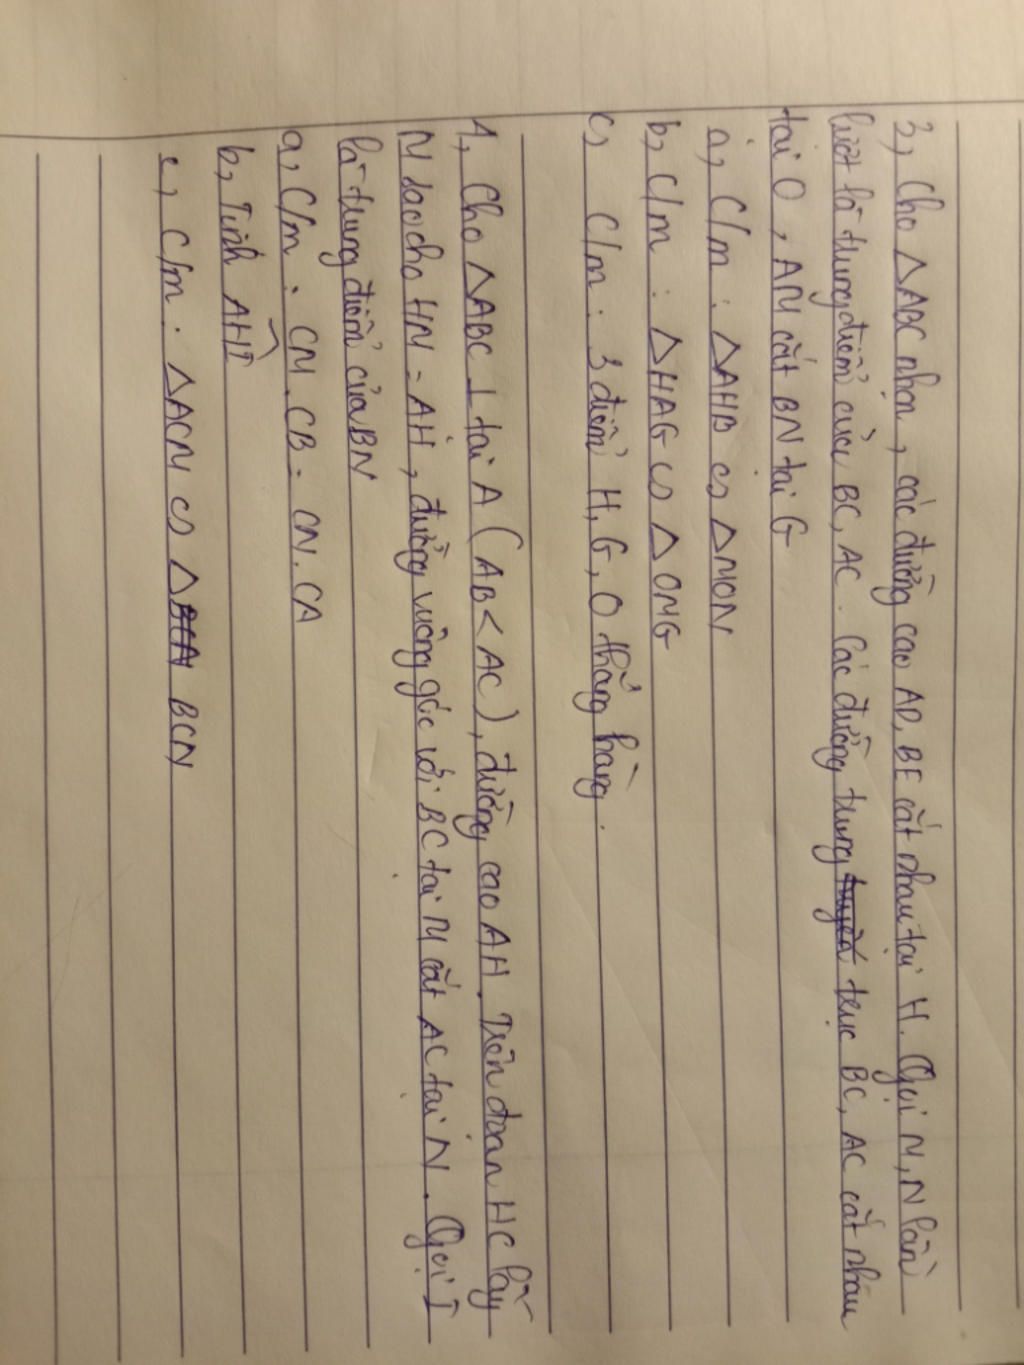 3, Cho △ABC nhọn, các đường cao AD, BE cắt nhau tại H. Gọi M, N lần
lượt là trung điểm của BC, AC. Các đường trung tuyến trực BC, AC cắt nhau
tại O, AM cắt BN tại G
a, C/m: △AHB ∽ △MON
b, C/m: △HAG ∽ △OMG
c, C/m: 3 điểm H, G, O thẳng hàng.
4, Cho △ABC ⊥ tại A (AB < AC), đường cao AH. Trên đoạn HC lấy
M sao cho HM = AH, đường vuông góc với BC tại M cắt AC tại N. Gọi I
là trung điểm của BN
a, C/m: CM.CB = CN.CA
b, Tính AHI
c, C/m: △ACM ∽ △BCN